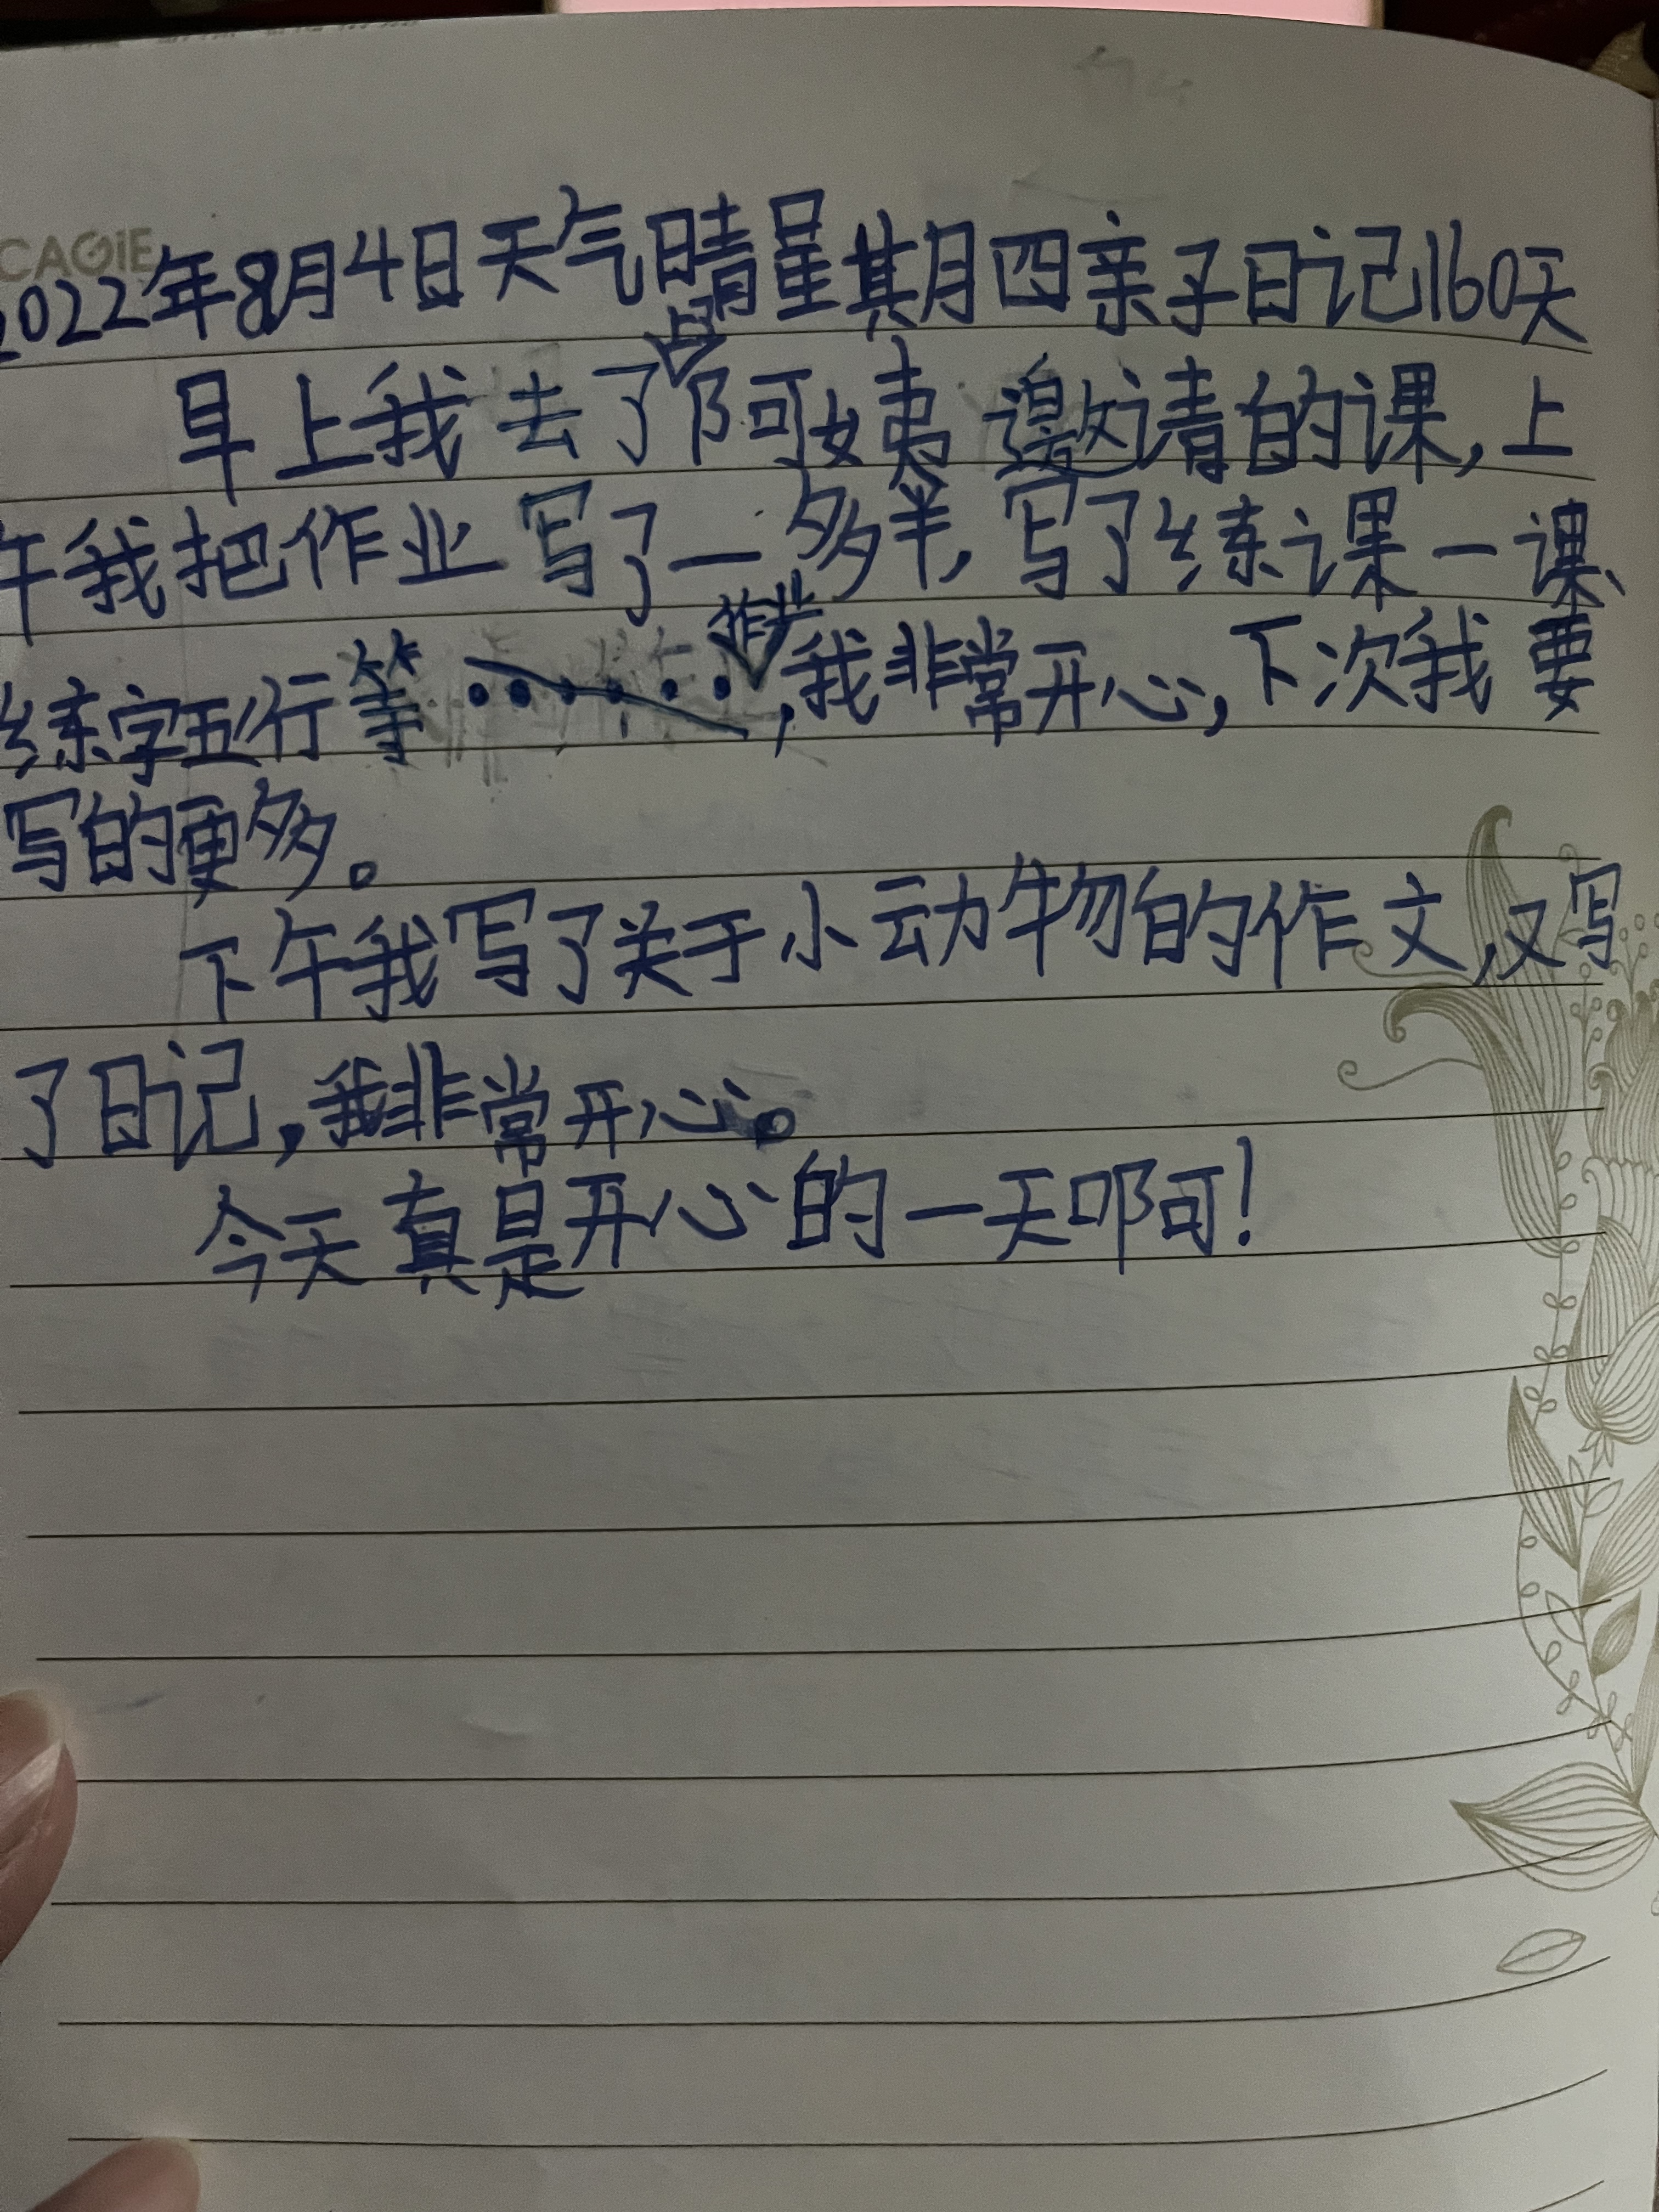 CAGiE
2022年8月4日天气晴星其月四亲子日记160天
早上我去了占阿姨邀请的课,上
午我把作业写了一多半,写了练课一课、
练字五行等作业,我非常开心,下次我要
写的更多。
下午我写了关于小动物的作文,又写
了日记,我非常开心。
今天真是开心的一天啊!